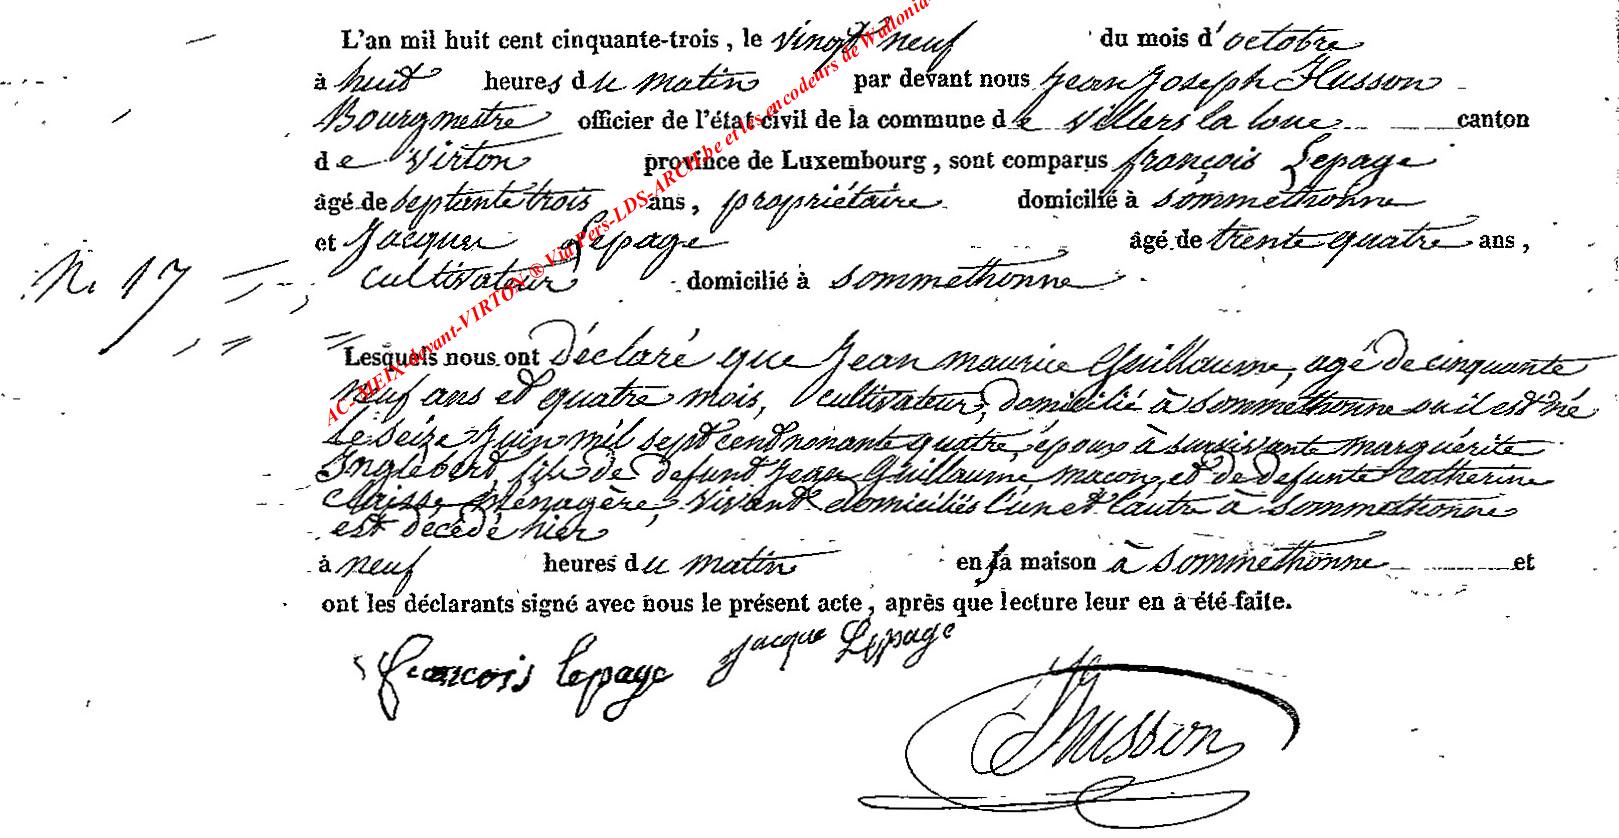 L'an mil huit cent cinquante-trois, le vingt neuf du mois d'octobre
à huit heures du matin par devant nous Jean Joseph Husson
Bourgmestre officier de l'état civil de la commune de Villers la loue canton
de Virton province de Luxembourg, sont comparus françois Lepage
âgé de septante trois ans, propriétaire domicilié à sommethonne
et Jacques Lepage âgé de trente quatre ans,
N. 17 cultivateur domicilié à sommethonne
Lesquels nous ont déclaré que Jean maurice Guillaume, agé de cinquante
neuf ans et quatre mois, cultivateur, domicilié à sommethonne où il est né
le seize Juin mil sept cent nonante quatre, époux à survivante marguérite
Inglebert, fils de defunt Jean Guillaume macon, et de defunte catherine
ménagère, vivant domiciliés l'un et l'autre à sommethonne
est décédé hier
à neuf heures du matin en sa maison à sommethonne et
ont les déclarants signé avec nous le présent acte, après que lecture leur en a été faite.
francois lepage Jacque Lepage
Husson
AC-MEIX-devant-VIRTON ® Via Pers-LDS-ARCH.be et les encodeurs de Wallonia-